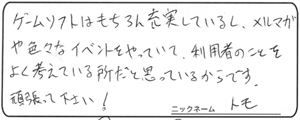 ゲームソフトはもちろん充実しているし、メルマガ
や色々なイベントをやっていて、利用者のことを
よく考えている所だと思っているからです。
頑張って下さい！
ニックネーム トモ